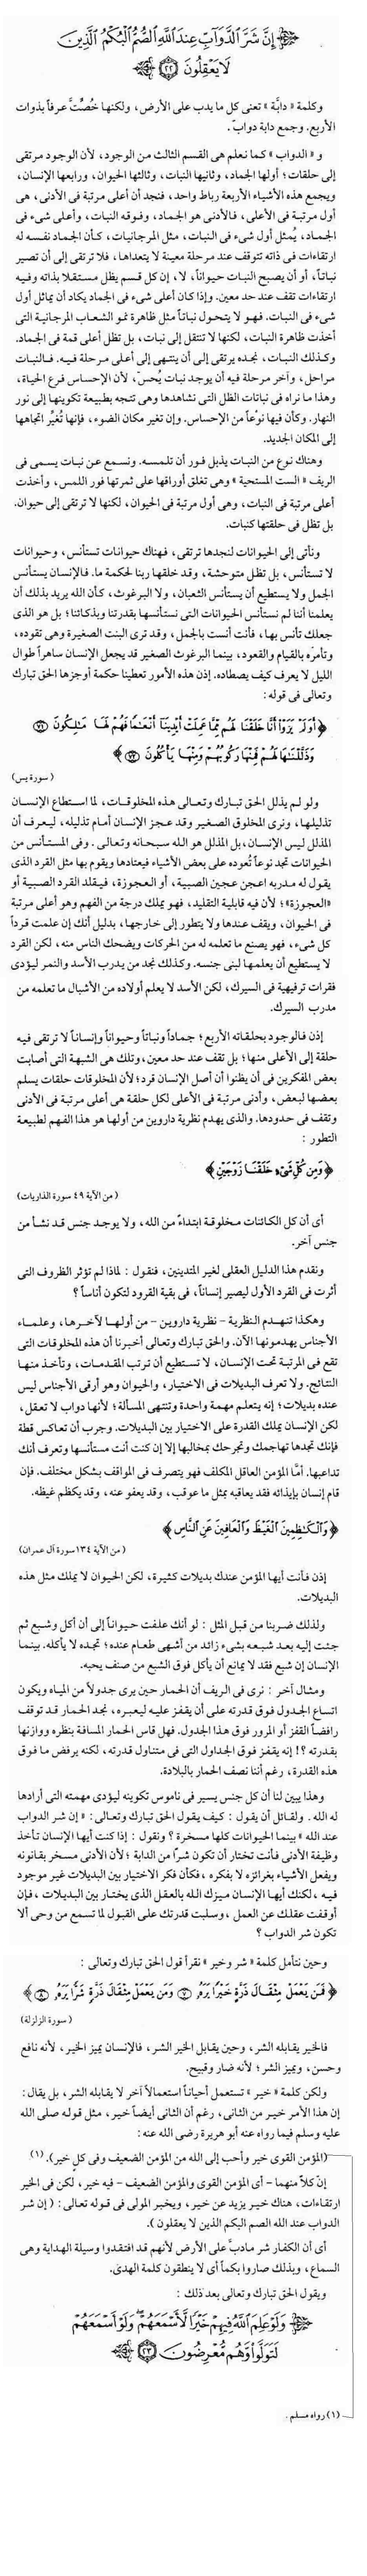 إِنَّ شَرَّ الدَّوَابِّ عِندَ اللَّهِ الصُّمُّ الْبُكْمُ الَّذِينَ
لَا يَعْقِلُونَ ﴿٢٢﴾
وكلمة « دابَّة » تعنى كل ما يدب على الأرض، ولكنها خُصَّتْ عرفاً بذوات
الأربع. وجمع دابة دوابّ.
و « الدواب » كما نعلم هى القسم الثالث من الوجود، لأن الوجود مرتقى
إلى حلقات؛ أولها الجماد، وثانيها النبات، وثالثها الحيوان، ورابعها الإنسان،
ويجمع هذه الأشياء الأربعة رباط واحد، فنجد أن أعلى مرتبة فى الأدنى، هى
أول مرتبة فى الأعلى، فالأدنى هو الجماد، وفوقه النبات، وأعلى شىء فى
الجماد، يُمثل أول شىء فى النبات، مثل المرجانيات، كأن الجماد نفسه له
ارتقاءات فى ذاته تتوقف عند مرحلة معينة لا يتعداها، فلا ترتقى إلى أن تصير
نباتاً، أو أن يصبح النبات حيواناً، لا، إن كل قسم يظل مستقلا بذاته وفيه
ارتقاءات تقف عند حد معين. وإذا كان أعلى شىء فى الجماد يكاد أن يماثل أول
شىء فى النبات. فهو لا يتحول نباتاً مثل ظاهرة نمو الشعاب المرجانية التى
أخذت ظاهرة النبات، لكنها لا تنتقل إلى نبات، بل تظل أعلى قمة فى الجماد.
وكذلك النبات، نجده يرتقى إلى أن ينتهى إلى أعلى مرحلة فيه. فالنبات
مراحل، وآخر مرحلة فيه أن يوجد نبات يُحسّ، لأن الإحساس فرع الحياة،
وهذا ما نراه فى نباتات الظل التى نشاهدها وهى تتجه بطبيعة تكوينها إلى نور
النهار. وكأن فيها نوعاً من الإحساس. وإن تغير مكان الضوء، فإنها تُغيِّر اتجاهها
إلى المكان الجديد.
وهناك نوع من النبات يذبل فور أن تلمسه. ونسمع عن نبات يسمى فى
الريف « الست المستحية » وهى تغلق أوراقها على ثمرتها فور اللمس، وأخذت
أعلى مرتبة فى النبات، وهى أول مرتبة فى الحيوان، لكنها لا ترتقى إلى حيوان.
بل تظل فى حلقتها كنبات.
ونأتى إلى الحيوانات لنجدها ترتقى، فهناك حيوانات تستأنس، وحيوانات
لا تستأنس، بل تظل متوحشة، وقد خلقها ربنا لحكمة ما. فالإنسان يستأنس
الجمل ولا يستطيع أن يستأنس الثعبان، ولا البرغوث، كأن الله يريد بذلك أن
يعلمنا أننا لم نستأنس الحيوانات التى نستأنسها بقدرتنا وبذكائنا؛ بل هو الذى
جعلك تأنس بها، فأنت أنست بالجمل، وقد ترى البنت الصغيرة وهى تقوده،
وتأمره بالقيام والقعود، بينما البرغوث الصغير قد يجعل الإنسان ساهراً طوال
الليل لا يعرف كيف يصطاده. إذن هذه الأمور تعطينا حكمة أوجزها الحق تبارك
وتعالى فى قوله:
﴿ أَوَلَمْ يَرَوْا أَنَّا خَلَقْنَا لَهُم مِّمَّا عَمِلَتْ أَيْدِينَا أَنْعَامًا فَهُمْ لَهَا مَالِكُونَ ﴿٧١﴾
وَذَلَّلْنَاهَا لَهُمْ فَمِنْهَا رَكُوبُهُمْ وَمِنْهَا يَأْكُلُونَ ﴿٧٢﴾ ﴾
( سورة يس)
ولو لم يذلل الحق تبارك وتعالى هذه المخلوقات، لما استطاع الإنسان
تذليلها، ونرى المخلوق الصغير وقد عجز الإنسان أمام تذليله، ليعرف أن
المذلل ليس الإنسان، بل المذلل هو الله سبحانه وتعالى. وفى المستأنس من
الحيوانات تجد نوعاً تُعوده على بعض الأشياء فيعتادها ويقوم بها مثل القرد الذى
يقول له مدربه اعجن عجين الصبية، أو العجوزة، فيقلد القرد الصبية أو
«العجوزة»؛ لأن فيه قابلية التقليد، فهو يملك درجة من الفهم وهو أعلى مرتبة
فى الحيوان، ويقف عندها ولا يتطور إلى خارجها، بدليل أنك إن علمت قرداً
كل شىء، فهو يصنع ما تعلمه له من الحركات ويضحك الناس منه، لكن القرد
لا يستطيع أن يعلمها لبنى جنسه. وكذلك نجد من يدرب الأسد والنمر ليؤدى
فقرات ترفيهية فى السيرك، لكن الأسد لا يعلم أولاده من الأشبال ما تعلمه من
مدرب السيرك.
إذن فالوجود بحلقاته الأربع؛ جماداً ونباتاً وحيواناً وإنساناً لا ترتقى فيه
حلقة إلى الأعلى منها؛ بل تقف عند حد معين، وتلك هى الشبهة التى أصابت
بعض المفكرين فى أن يظنوا أن أصل الإنسان قرد؛ لأن المخلوقات حلقات يسلم
بعضها لبعض، وأدنى مرتبة فى الأعلى لكل حلقة هى أعلى مرتبة فى الأدنى
وتقف فى حدودها. والذى يهدم نظرية داروين من أولها هو هذا الفهم لطبيعة
التطور :
﴿ وَمِن كُلِّ شَيْءٍ خَلَقْنَا زَوْجَيْنِ ﴾
( من الآية ٤٩ سورة الذاريات)
أى أن كل الكائنات مخلوقة ابتداءً من الله، ولا يوجد جنس قد نشأ من
جنس آخر.
ونقدم هذا الدليل العقلى لغير المتدينين، فنقول : لماذا لم تؤثر الظروف التى
أثرت فى القرد الأول ليصير إنساناً، فى بقية القرود لتكون أناساً ؟
وهكذا تنهدم النظرية - نظرية داروين - من أولها لآخرها، وعلماء
الأجناس يهدمونها الآن. والحق تبارك وتعالى أخبرنا أن هذه المخلوقات التى
تقع فى المرتبة تحت الإنسان، لا تستطيع أن ترتب المقدمات، وتأخذ منها
النتائج. ولا تعرف البديلات فى الاختيار، والحيوان وهو أرقى الأجناس ليس
عنده بديلات؛ إنه يتعلم مهمة واحدة وتنتهى المسألة؛ لأنها دواب لا تعقل،
لكن الإنسان يملك القدرة على الاختيار بين البديلات. وجرب أن تعاكس قطة
فإنك تجدها تهاجمك وتجرحك بمخالبها إلا إن كنت أنت مستأنسها وتعرف أنك
تداعبها. أمَّا المؤمن العاقل المكلف فهو يتصرف فى المواقف بشكل مختلف. فإن
قام إنسان بإيذائه فقد يعاقبه بمثل ما عوقب، وقد يعفو عنه، وقد يكظم غيظه.
﴿ وَالْكَاظِمِينَ الْغَيْظَ وَالْعَافِينَ عَنِ النَّاسِ ﴾
( من الآية ١٣٤ سورة آل عمران)
إذن فأنت أيها المؤمن عندك بديلات كثيرة، لكن الحيوان لا يملك مثل هذه
البديلات.
ولذلك ضربنا من قبل المثل : لو أنك علفت حيواناً إلى أن أكل وشبع ثم
جئت إليه بعد شبعه بشىء زائد من أشهى طعام عنده؛ تجده لا يأكله. بينما
الإنسان إن شبع فقد لا يمانع أن يأكل فوق الشبع من صنف يحبه.
ومثال آخر : نرى فى الريف أن الحمار حين يرى جدولاً من المياه ويكون
اتساع الجدول فوق قدرته على أن يقفز عليه ليعبره، نجد الحمار قد توقف
رافضاً القفز أو المرور فوق هذا الجدول. فهل قاس الحمار المسافة بنظره ووازنها
بقدرته ؟! إنه يقفز فوق الجداول التى فى متناول قدرته، لكنه يرفض ما فوق
هذه القدرة، رغم أننا نصف الحمار بالبلادة.
وهذا يبين لنا أن كل جنس يسير فى ناموس تكوينه ليؤدى مهمته التى أرادها
له الله . ولقائل أن يقول : كيف يقول الحق تبارك وتعالى: « إن شر الدواب
عند الله » بينما الحيوانات كلها مسخرة ؟ ونقول : إذا كنت أيها الإنسان تأخذ
وظيفة الأدنى فأنت تختار أن تكون شرًا من الدابة ؛ لأن الأدنى مسخر بقانونه
ويفعل الأشياء بغرائزه لا بفكره ، فكأن فكر الاختيار بين البديلات غير موجود
فيه ، لكنك أيها الإنسان ميزك الله بالعقل الذى يختار بين البديلات ، فإن
أوقفت عقلك عن العمل ، وسلبت قدرتك على القبول لما تسمع من وحى ألا
تكون شر الدواب ؟
وحين نتأمل كلمة « شر وخير » نقرأ قول الحق تبارك وتعالى :
﴿ فَمَن يَعْمَلْ مِثْقَالَ ذَرَّةٍ خَيْرًا يَرَهُ ﴿٧﴾ وَمَن يَعْمَلْ مِثْقَالَ ذَرَّةٍ شَرًّا يَرَهُ ﴿٨﴾ ﴾
( سورة الزلزلة)
فالخير يقابله الشر، وحين يقابل الخير الشر، فالإنسان يميز الخير، لأنه نافع
وحسن، ويميز الشر؛ لأنه ضار وقبيح.
ولكن كلمة « خير » تستعمل أحياناً استعمالاً آخر لا يقابله الشر، بل يقال:
إن هذا الأمر خير من الثانى، رغم أن الثانى أيضاً خير، مثل قوله صلى الله
عليه وسلم فيما رواه عنه أبو هريرة رضى الله عنه:
(المؤمن القوى خير وأحب إلى الله من المؤمن الضعيف وفى كلٍ خير). (١)
إنّ كلاً منهما - أى المؤمن القوى والمؤمن الضعيف - فيه خير، لكن فى الخير
ارتقاءات، هناك خير يزيد عن خير، ويخبر المولى فى قوله تعالى: ( إن شر
الدواب عند الله الصم البكم الذين لا يعقلون ).
أى أن الكفار شر مادبَّ على الأرض لأنهم قد افتقدوا وسيلة الهداية وهى
السماع، وبذلك صاروا بكماً أى لا ينطقون كلمة الهدى.
ويقول الحق تبارك وتعالى بعد ذلك :
وَلَوْ عَلِمَ اللَّهُ فِيهِمْ خَيْرًا لَّأَسْمَعَهُمْ وَلَوْ أَسْمَعَهُمْ
لَتَوَلَّوا وَّهُم مُّعْرِضُونَ ﴿٢٣﴾
(١) رواه مسلم .